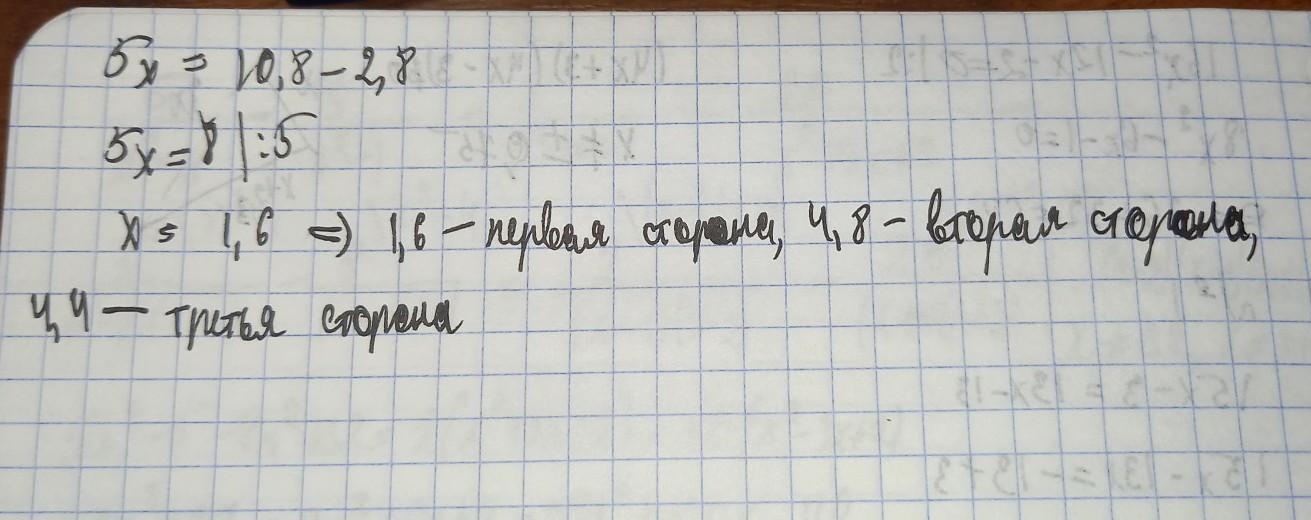 5x = 10,8 - 2,8
5x = 8 | : 5
x = 1,6 => 1,6 - первая сторона, 4,8 - вторая сторона,
4,4 - третья сторона